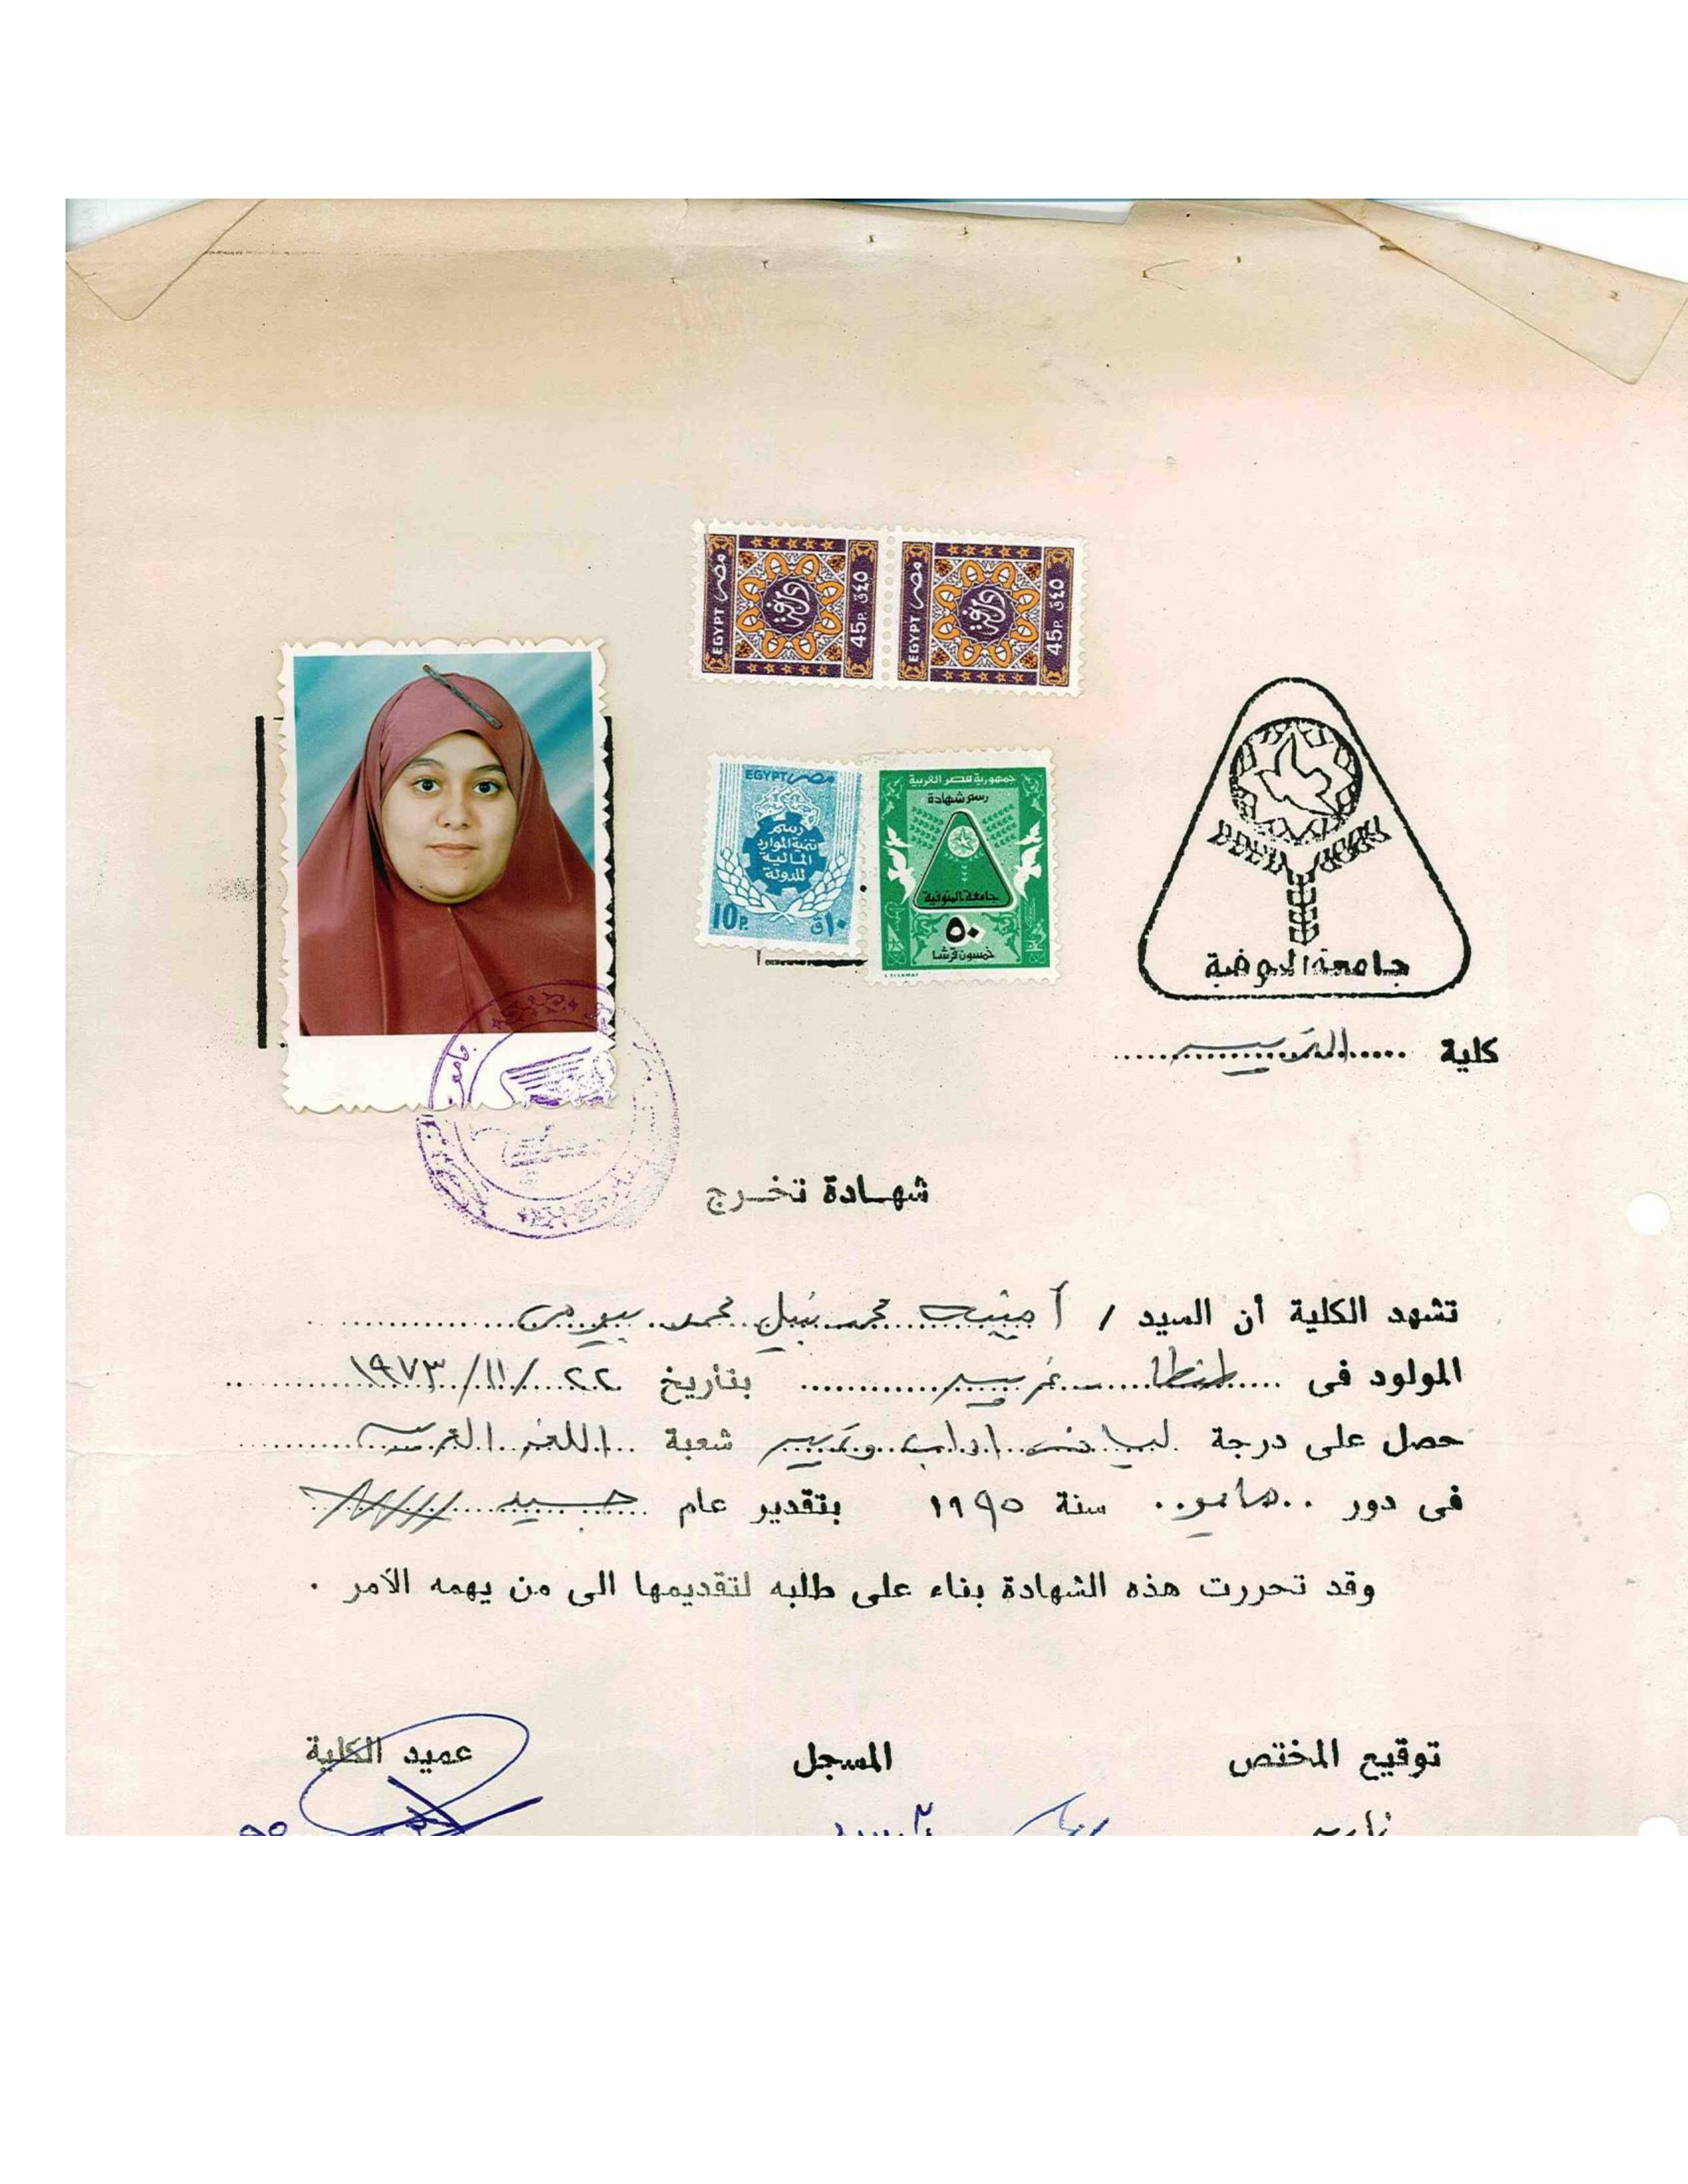 مصر EGYPT
٤٥ ق 45P.
مصر EGYPT
٤٥ ق 45P.
EGYPT مصر
رسم
تنمية الموارد
المالية
للدولة
10P. ١٠ق
جمهورية مصر العربية
رسم شهادة
جامعة المنوفية
٥٠
خمسون قرشا
جامعة المنوفية
كلية التربية
شهادة تخرج
تشهد الكلية أن السيد / أمنية محمد نبيل محمد بيومى
المولود فى طنطا غربية بتاريخ ٢٢ / ١١ / ١٩٧٣
حصل على درجة ليسانس اداب وتربية شعبة اللغة
فى دور مايو سنة ١٩٩٥ بتقدير عام جيد
وقد تحررت هذه الشهادة بناء على طلبه لتقديمها الى من يهمه الأمر .
توقيع المختص المسجل عميد الكلية